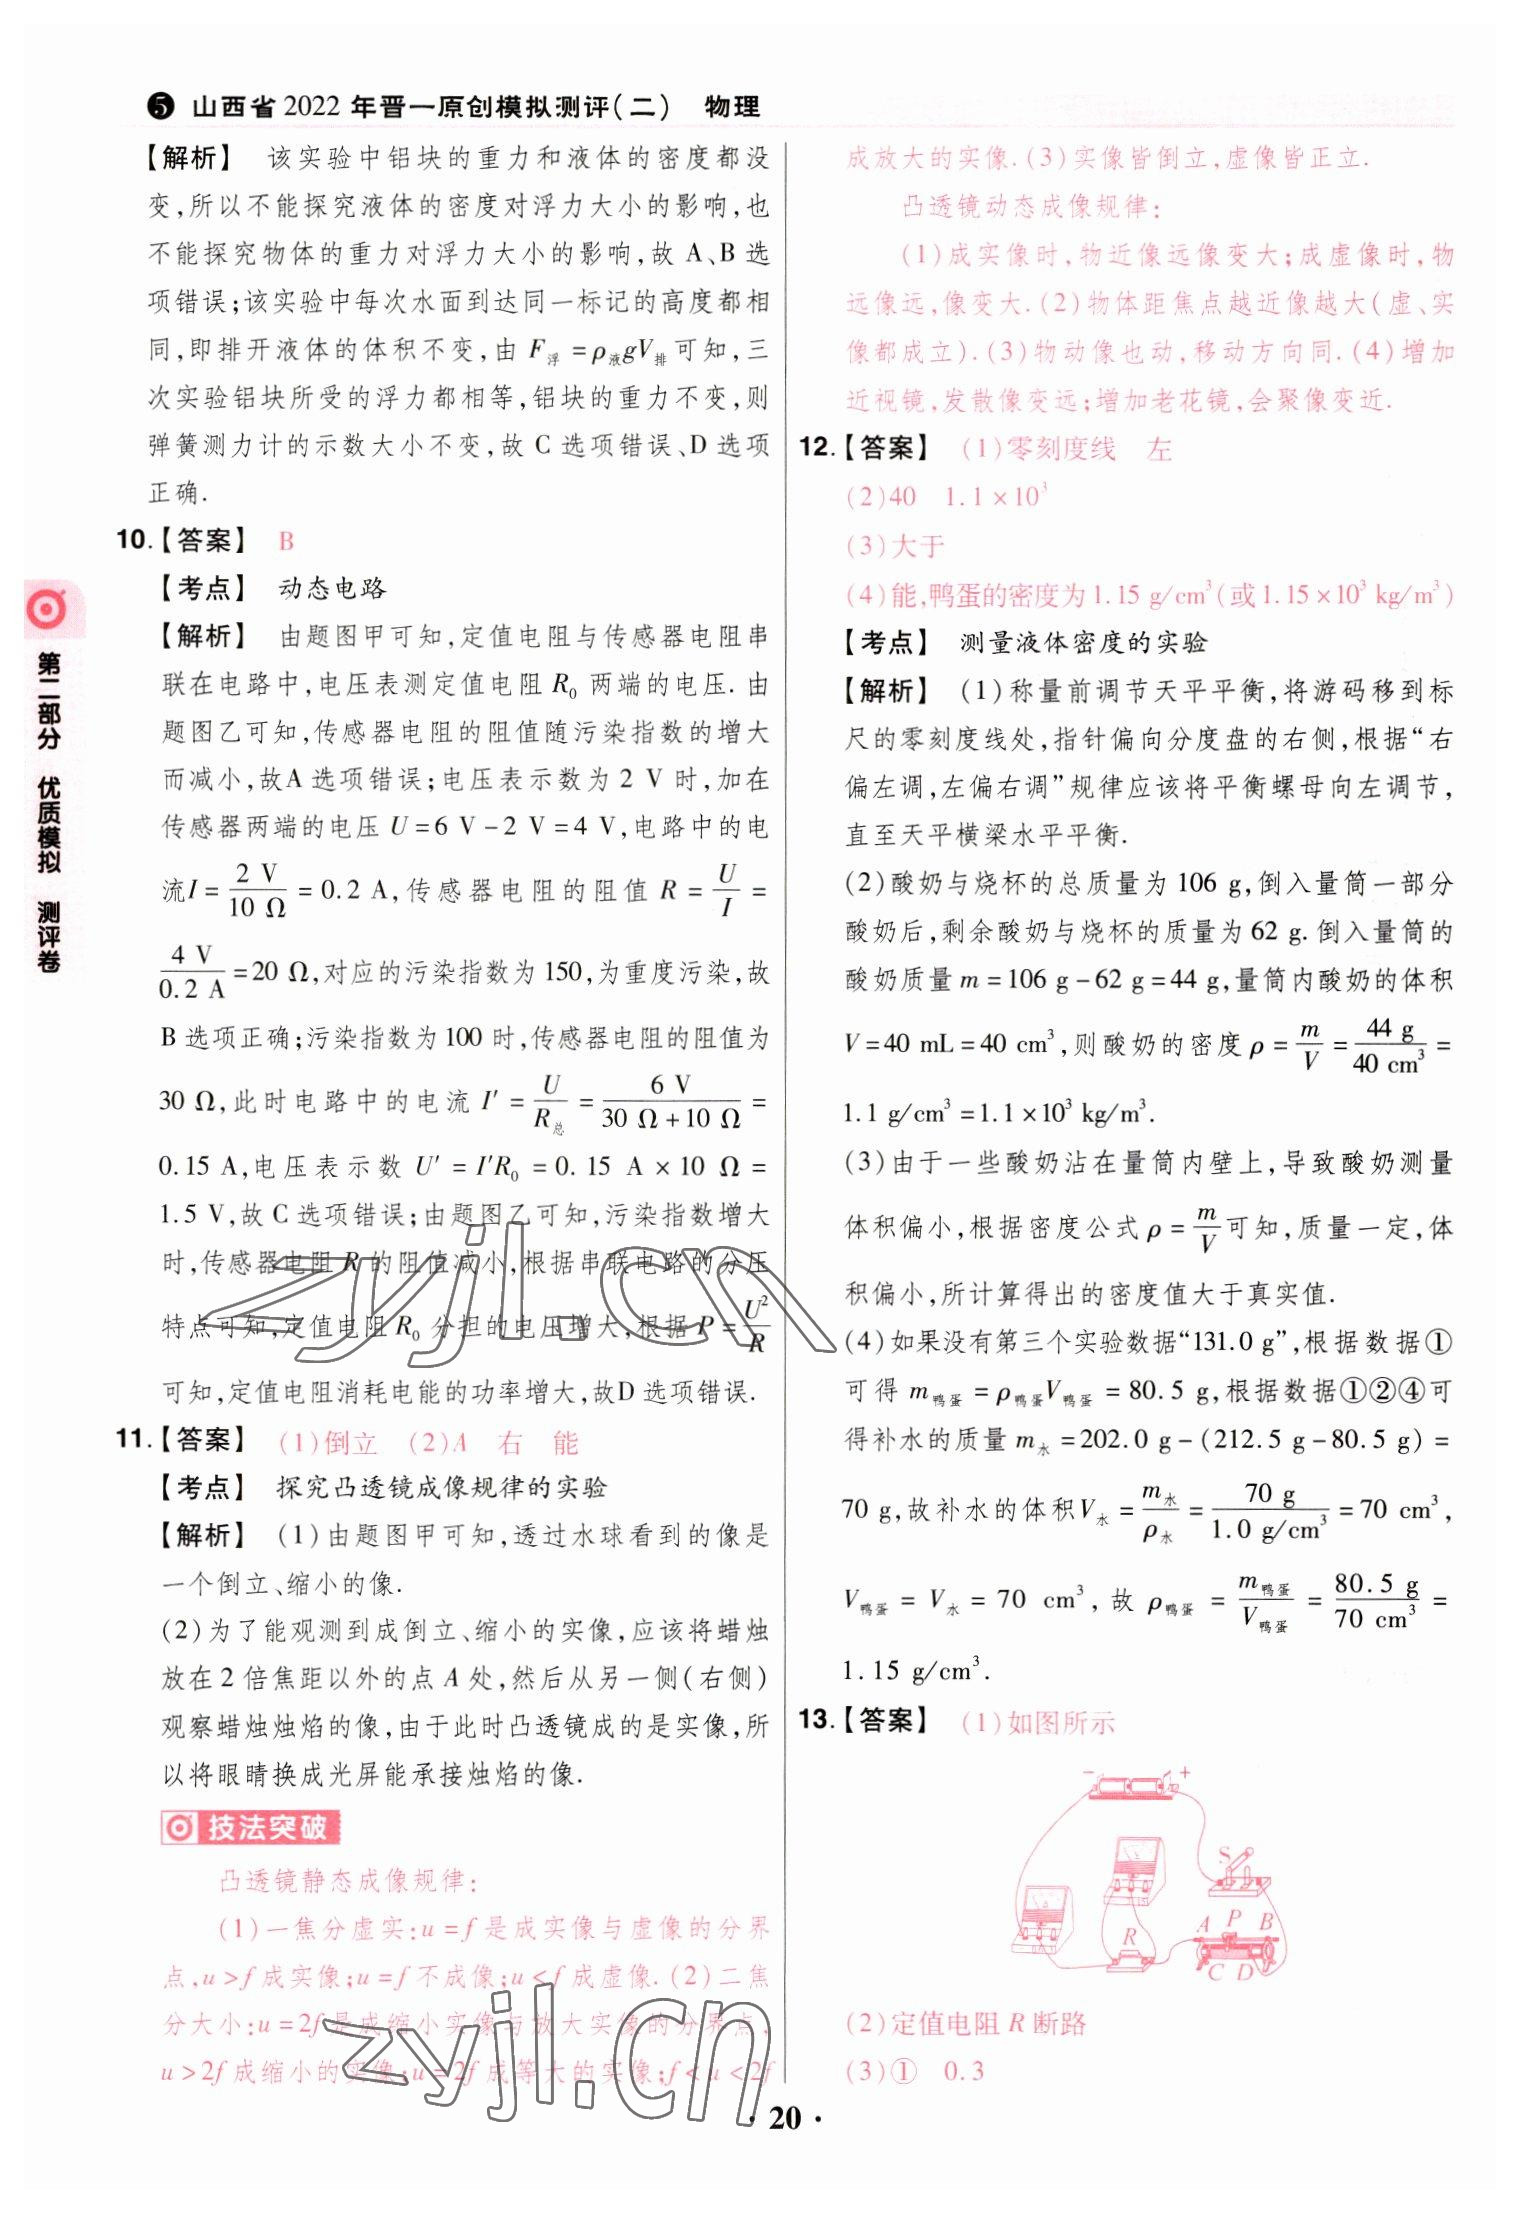 ❺ 山西省 2022 年晋一原创模拟测评(二) 物理
【解析】 该实验中铝块的重力和液体的密度都没
变,所以不能探究液体的密度对浮力大小的影响,也
不能探究物体的重力对浮力大小的影响,故 A、B 选
项错误;该实验中每次水面到达同一标记的高度都相
同,即排开液体的体积不变,由 F浮=ρ液gV排可知,三
次实验铝块所受的浮力都相等,铝块的重力不变,则
弹簧测力计的示数大小不变,故 C 选项错误、D 选项
正确.
10.【答案】 B
【考点】 动态电路
【解析】 由题图甲可知,定值电阻与传感器电阻串
联在电路中,电压表测定值电阻 R₀ 两端的电压. 由
题图乙可知,传感器电阻的阻值随污染指数的增大
而减小,故A 选项错误;电压表示数为 2 V 时,加在
传感器两端的电压 U=6 V-2 V=4 V,电路中的电
流I=2 V/10 Ω=0.2 A,传感器电阻的阻值 R=U/I=
4 V/0.2 A=20 Ω,对应的污染指数为 150,为重度污染,故
B 选项正确;污染指数为 100 时,传感器电阻的阻值为
30 Ω,此时电路中的电流 I′=U/R总=6 V/(30 Ω+10 Ω)=
0.15 A,电压表示数 U′=I′R₀=0.15 A×10 Ω=
1.5 V,故 C 选项错误;由题图乙可知,污染指数增大
时,传感器电阻 R 的阻值减小,根据串联电路的分压
特点可知,定值电阻 R₀ 分担的电压增大,根据 P=U²/R
可知,定值电阻消耗电能的功率增大,故D 选项错误.
11.【答案】 (1)倒立 (2)A 右 能
【考点】 探究凸透镜成像规律的实验
【解析】 (1)由题图甲可知,透过水球看到的像是
一个倒立、缩小的像.
(2)为了能观测到成倒立、缩小的实像,应该将蜡烛
放在 2 倍焦距以外的点 A 处,然后从另一侧(右侧)
观察蜡烛烛焰的像,由于此时凸透镜成的是实像,所
以将眼睛换成光屏能承接烛焰的像.
技法突破
凸透镜静态成像规律:
(1)一焦分虚实:u=f 是成实像与虚像的分界
点,u>f 成实像;u=f 不成像;u<f 成虚像.(2)二焦
分大小:u=2f是成缩小实像与放大实像的分界点,
u>2f 成缩小的实像;u=2f 成等大的实像;f<u<2f
成放大的实像.(3)实像皆倒立,虚像皆正立.
凸透镜动态成像规律:
(1)成实像时,物近像远像变大;成虚像时,物
远像远,像变大.(2)物体距焦点越近像越大(虚、实
像都成立).(3)物动像也动,移动方向同.(4)增加
近视镜,发散像变远;增加老花镜,会聚像变近.
12.【答案】 (1)零刻度线 左
(2)40 1.1×10³
(3)大于
(4)能,鸭蛋的密度为 1.15 g/cm³(或 1.15×10³ kg/m³)
【考点】 测量液体密度的实验
【解析】 (1)称量前调节天平平衡,将游码移到标
尺的零刻度线处,指针偏向分度盘的右侧,根据“右
偏左调,左偏右调”规律应该将平衡螺母向左调节,
直至天平横梁水平平衡.
(2)酸奶与烧杯的总质量为 106 g,倒入量筒一部分
酸奶后,剩余酸奶与烧杯的质量为 62 g. 倒入量筒的
酸奶质量 m=106 g-62 g=44 g,量筒内酸奶的体积
V=40 mL=40 cm³,则酸奶的密度 ρ=m/V=44 g/40 cm³=
1.1 g/cm³=1.1×10³ kg/m³.
(3)由于一些酸奶沾在量筒内壁上,导致酸奶测量
体积偏小,根据密度公式 ρ=m/V可知,质量一定,体
积偏小,所计算得出的密度值大于真实值.
(4)如果没有第三个实验数据“131.0 g”,根据数据①
可得 m鸭蛋=ρ鸭蛋V鸭蛋=80.5 g,根据数据①②④可
得补水的质量 m水=202.0 g-(212.5 g-80.5 g)=
70 g,故补水的体积V水=m水/ρ水=70 g/1.0 g/cm³=70 cm³,
V鸭蛋=V水=70 cm³,故 ρ鸭蛋=m鸭蛋/V鸭蛋=80.5 g/70 cm³=
1.15 g/cm³.
13.【答案】 (1)如图所示
- +
S
R A P B
C D
(2)定值电阻 R 断路
(3)① 0.3
第二部分 优质模拟 测评卷
zyjl.cn
zyjl.cn
· 20 ·